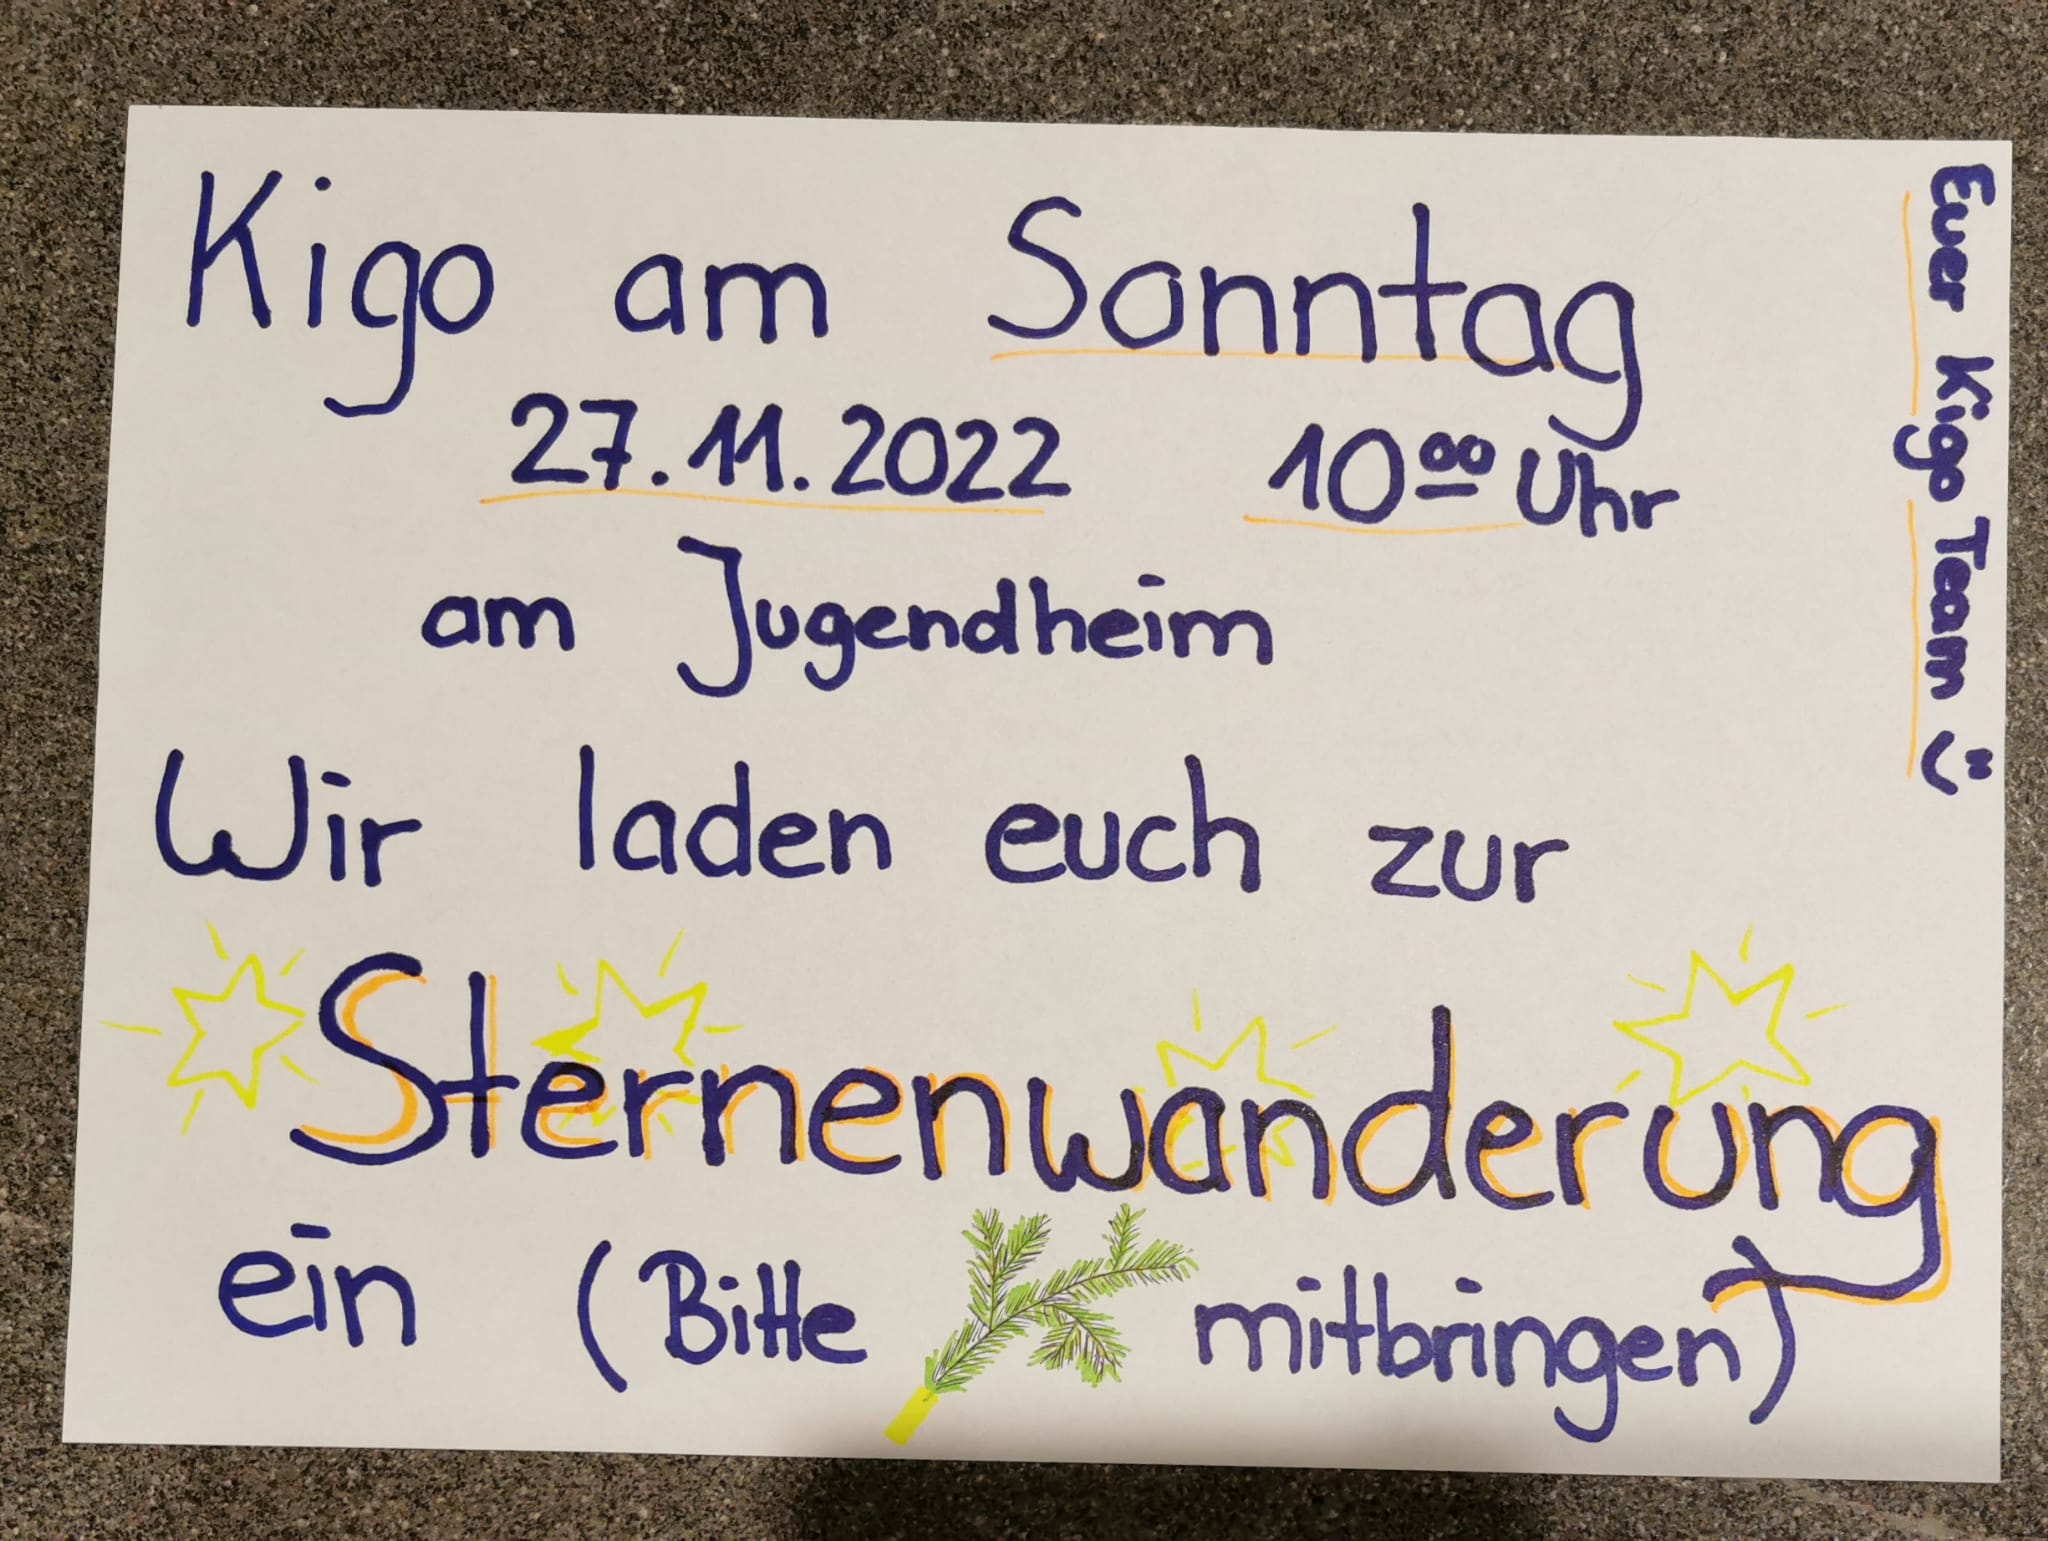 Kigo am Sonntag
27.11.2022 10⁰⁰ Uhr
am Jugendheim
Wir laden euch zur
Sternenwanderung
ein (Bitte mitbringen)
Euer Kigo Team